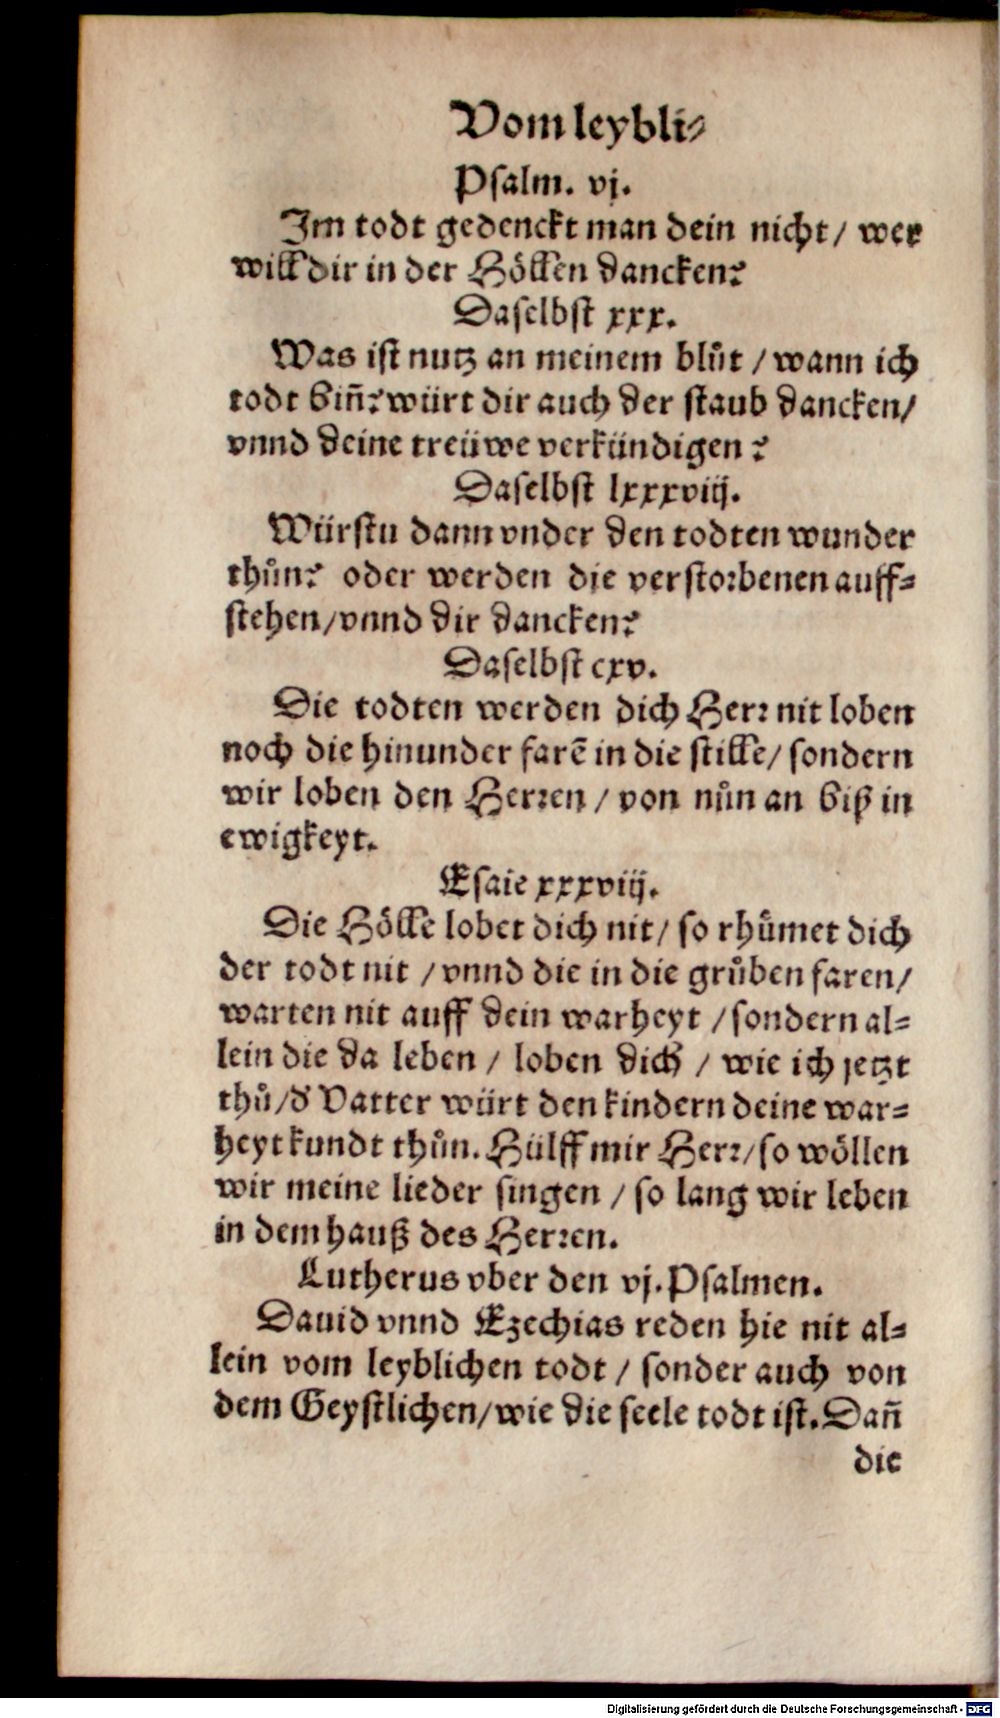 Vom leybli⸗
Psalm. vj.
Im todt gedenckt man dein nicht/ wer
will dir in der Höllen dancken?
Daselbst xxx.
Was ist nutz an meinem blůt / wann ich
todt biñ? würt dir auch der staub dancken/
vnnd deine treüwe verkündigen?
Daselbst lxxxviij.
Würstu dann vnder den todten wunder
thůn? oder werden die verstorbenen auff⸗
stehen/vnnd dir dancken?
Daselbst cxv.
Die todten werden dich Herr nit loben
noch die hinunder farē in die stille/ sondern
wir loben den Herren / von nůn an biß in
ewigkeyt.
Esaie xxxviij.
Die Hölle lobet dich nit/ so rhůmet dich
der todt nit / vnnd die in die grůben faren/
warten nit auff dein warheyt / sondern al⸗
lein die da leben / loben dich / wie ich jetzt
thů/d' Vatter würt den kindern deine war⸗
heyt kundt thůn. Hülff mir Herr/so wöllen
wir meine lieder singen / so lang wir leben
in dem hauß des Herren.
Lutherus vber den vj. Psalmen.
Dauid vnnd Ezechias reden hie nit al⸗
lein vom leyblichen todt / sonder auch von
dem Geystlichen/wie die seele todt ist. Dañ
die
Digitalisierung gefördert durch die Deutsche Forschungsgemeinschaft - DFG